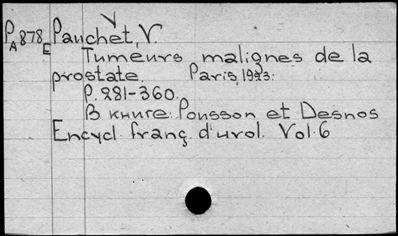 PA878E Pauchet, V.
Tumeurs malignes de la
prostate. Paris, 1923.
P. 281-360.
В книге: Pousson et Desnos
Encycl. franç. d'urol. Vol. 6